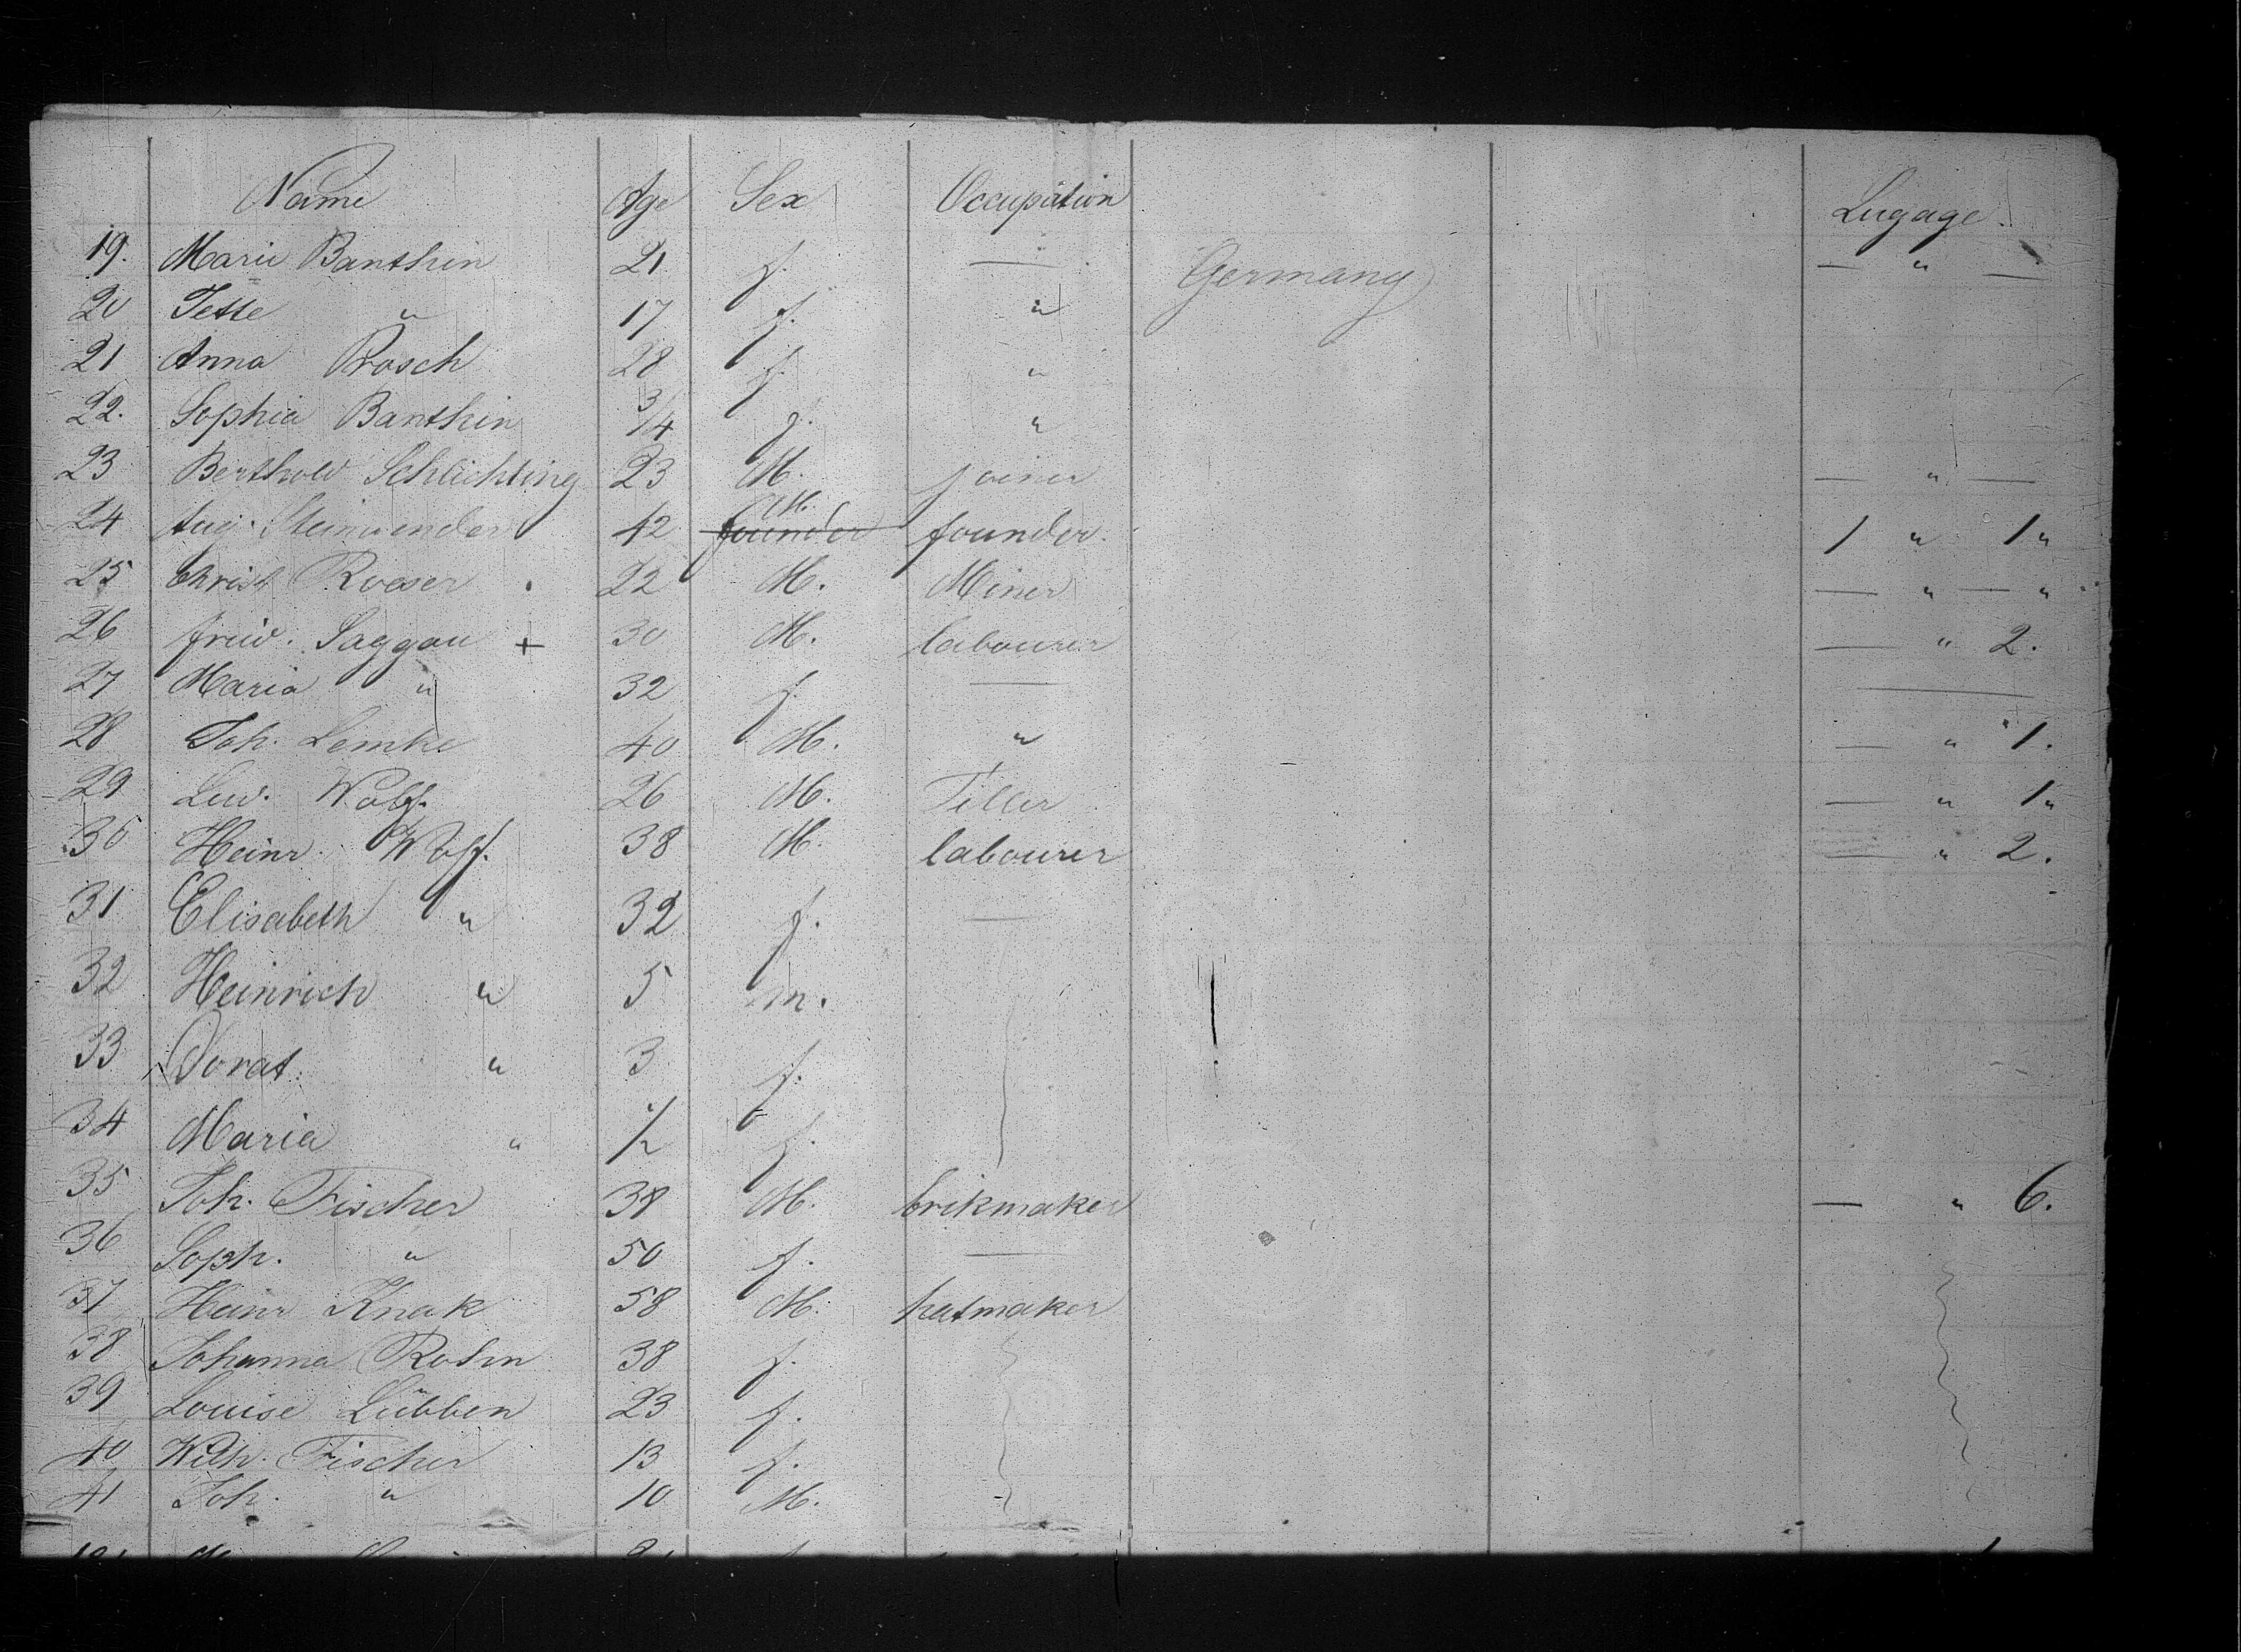 Name Age Sex Occupation Lugage.
19. Marie Banthin 21 f. — Germany — " —
20 Tette " 17 f. "
21 Anna Prösch 28 f. "
22. Sophia Banthin 3/4 f. "
23 Berthold Schlichting 23 M. joiner — " —
24 Aug. Steinwender 42 founder M. founder. 1 " 1 "
25 Christ Roeser 22 M. Miner — " — "
26 fried. Saggau + 30 M. labourer — " 2.
27 Maria " 32 f. —
28 Joh. Lemke 40 M. " — " 1.
29 Lud. Wolf. 26 M. Tiller — " 1 "
30 Heinr. Wolf. 38 M. labourer — " 2.
31 Elisabeth " 32 f. —
32 Heinrich " 5 m.
33 Dorat. " 3 f.
34 Maria " 1/2 f.
35 Joh. Fischer 38 M. brikmaker — " 6.
36 Soph. " 50 f. —
37 Heinr Knak 58 M. hatmaker
38 Johanna Rohn 38 f.
39 Louise Lübben 23 f.
40 Wilh. Fischer 13 f.
41 Joh. " 10 M.